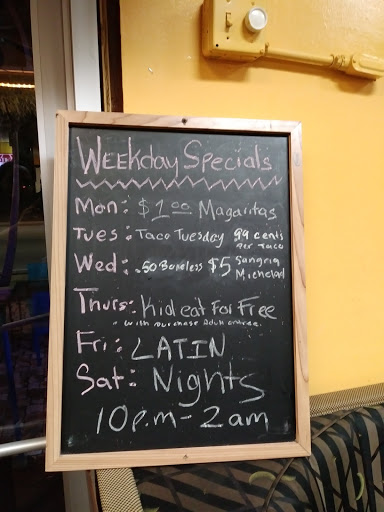 WEEKday Specials
Mon: $1.00 Magaritas
Tues: Taco Tuesday 99 cents
Per Taco
Wed: .50 Boneless $5 Sangria
Michelad
Thurs: Kid eat For Free
* with purchase Adult entree.
Fri: LATIN
Sat: Nights
10p.m - 2am